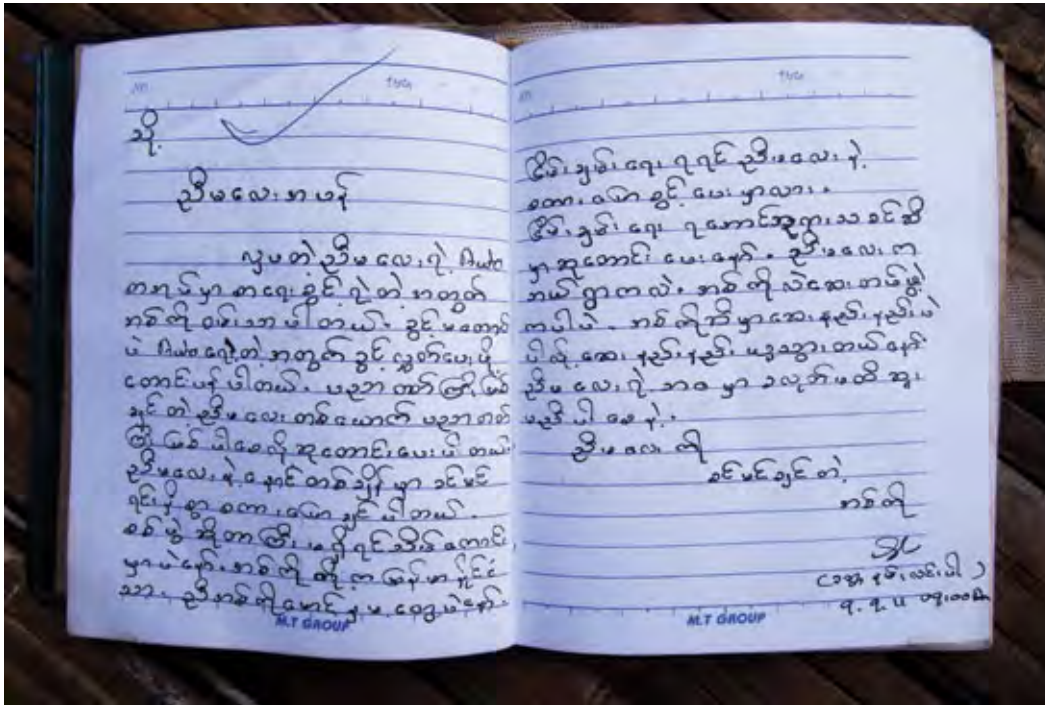 သို့
ညီမလေးအမန်
လှပတဲ့ ညီမလေးရဲ့ Auto
စာအုပ်မှာ စာရေးခွင့်ရဲ့တဲ့ အတွက်
အစ်ကို ဝမ်းသာပါတယ်။ ခွင့်မတောင်း
ပဲ Auto ရေးတဲ့ အတွက် ခွင့်လွှတ်ပေးဖို့
တောင်းပန်ပါတယ်။ ပညာတတ်ကြီးဖြစ်
ချင်တဲ့ ညီမလေးတစ်ယောက် ပညာတတ်
ကြီးဖြစ်ပါစေလို့ ဆုတောင်းပေးပါတယ်။
ညီမလေးနဲ့ နောင်တစ်ချိန်မှာ ခင်မင်
ရင်းနှီးစွာ စကားပြောချင်ပါတယ်။
စစ်ပွဲဆိုတာကြီး မရှိရင် သိပ်ကောင်း
မှာပဲနော်။ အစ်ကိုတို့က မြန်မာနိုင်ငံ
သား ညီအစ်ကိုမောင်နှမတွေပဲနော်။
M.T GROUP
ငြိမ်းချမ်းရေး ရရင် ညီမလေးနဲ့
စကားပြောခွင့် ပေးမှာလား။
ငြိမ်းချမ်းရေး ရအောင်ဘုရားသခင်ဆီ
မှာဆုတောင်းပေးနော်။ ညီမလေးက
ဘယ်ရွာကလဲ။ အစ်ကိုလဲဆေးတပ်ဖွဲ့
ကပါပဲ။ အစ်ကိုဆီမှာဆေးနည်းနည်းပဲ
ပါလို့ ဆေးနည်းနည်းယူသွားတယ်နော်
ညီမလေးရဲ့ ဘဝမှာ ခလုတ်မထိဆူး
မညှိပါစေနဲ့။
ညီမလေးကို
ခင်မင်ချင်တဲ့
အစ်ကို
M.T GROUP